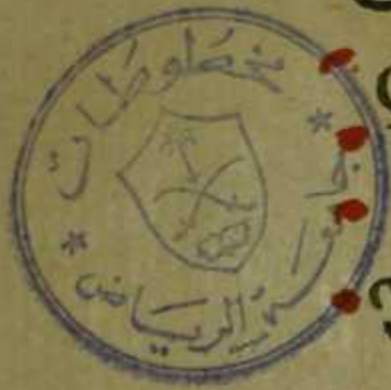 مخطوطات
* جامعة الرياض *